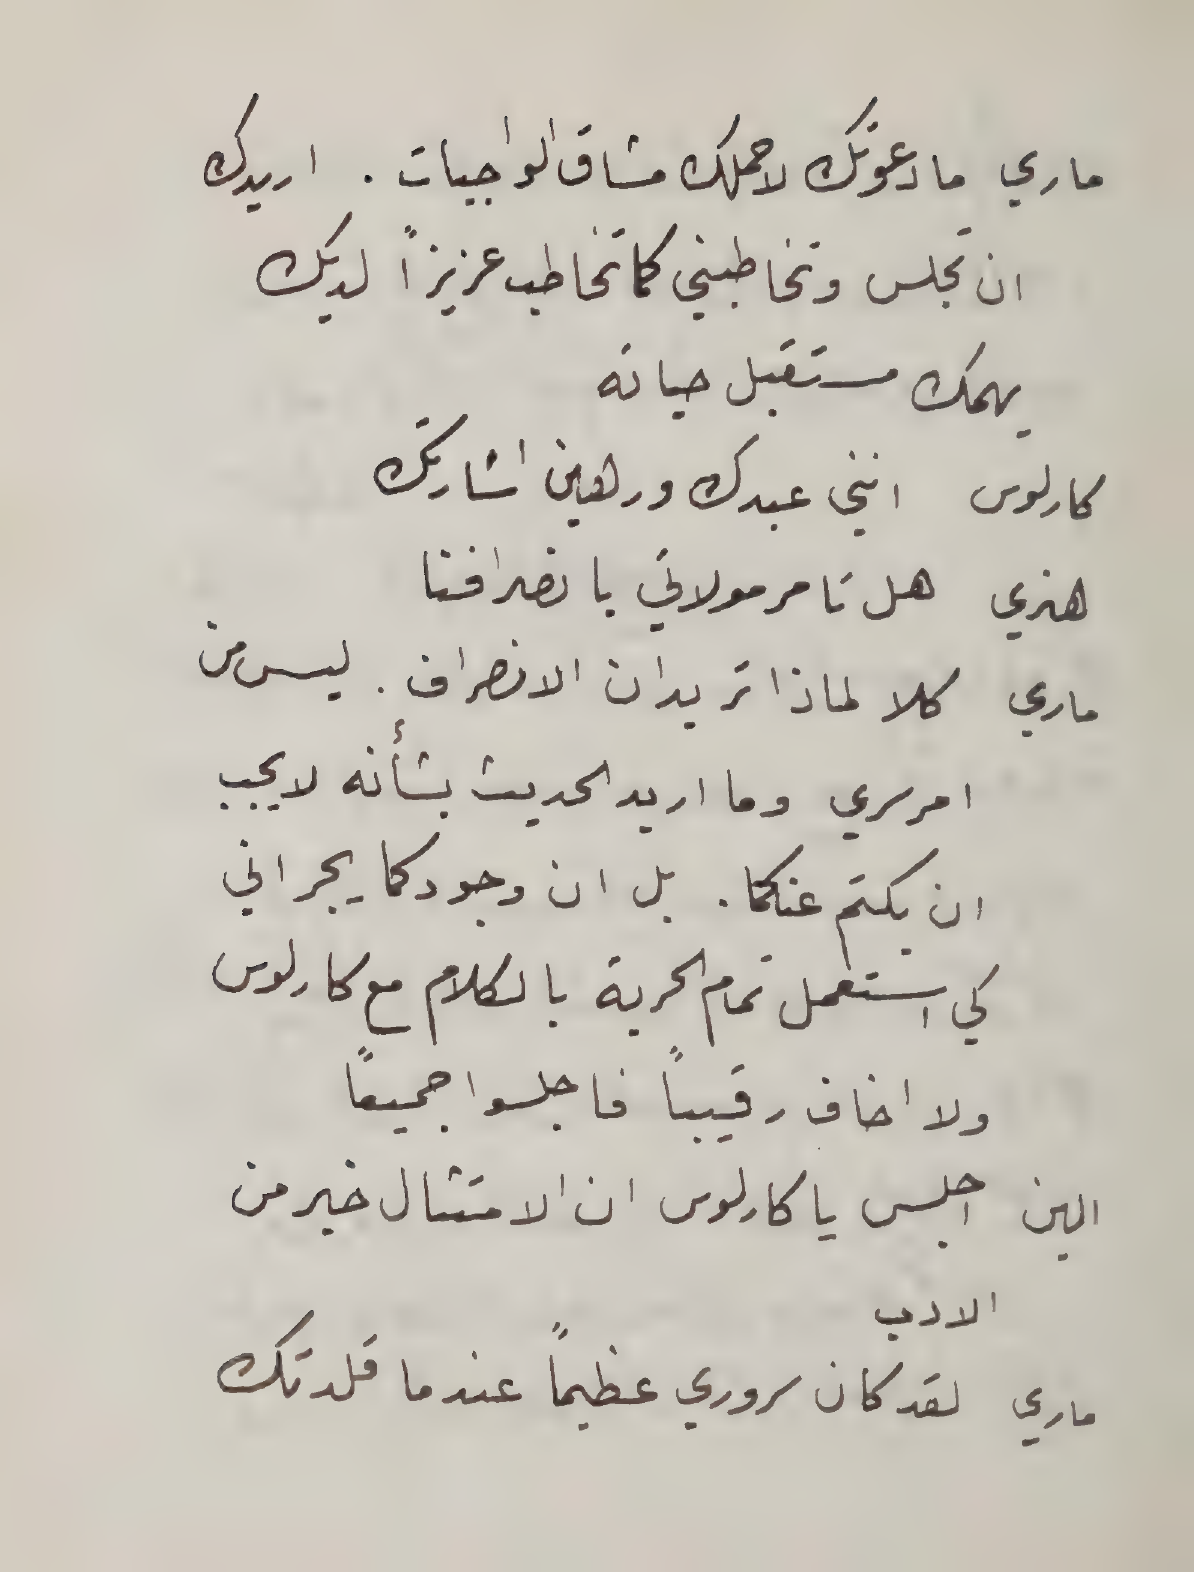 ماري ما دعوتك لاحملك مشاق الواجبات . اريدك
ان تجلس وتخاطبني كما تخاطب عزيزاً لديك
يهمك مستقبل حياته
كارلوس انني عبدك ورهين اشارتك
هنري هل تامر مولاتي بانصرافنا
ماري كلا لماذا تريدان الانصراف . ليس من
امر سري وما اريد الحديث بشأنه لا يجب
ان يكتم عنكما . بل ان وجودكما يجراني
كي استعمل تمام الحرية بالكلام مع كارلوس
ولا اخاف رقيباً فاجلسوا جميعاً
الين اجلس يا كارلوس ان الامتثال خير من
الادب
ماري لقد كان سروري عظيماً عندما قلدتك